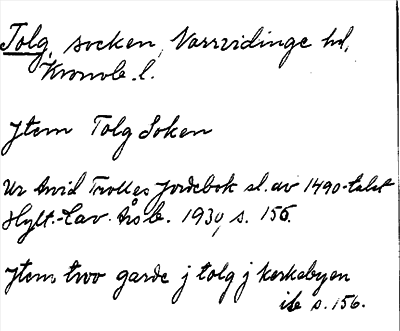 Tolg, socken, Norrvidinge hd,
Kronob. l.
Jtem Tolg Soken
Ur Arvid Trolles Jordebok sl. av 1490-talet
Hylt.-Cav. Årsb. 1930, s. 156.
Jtem two garde j tolg j kerkebyen
ib s. 156.